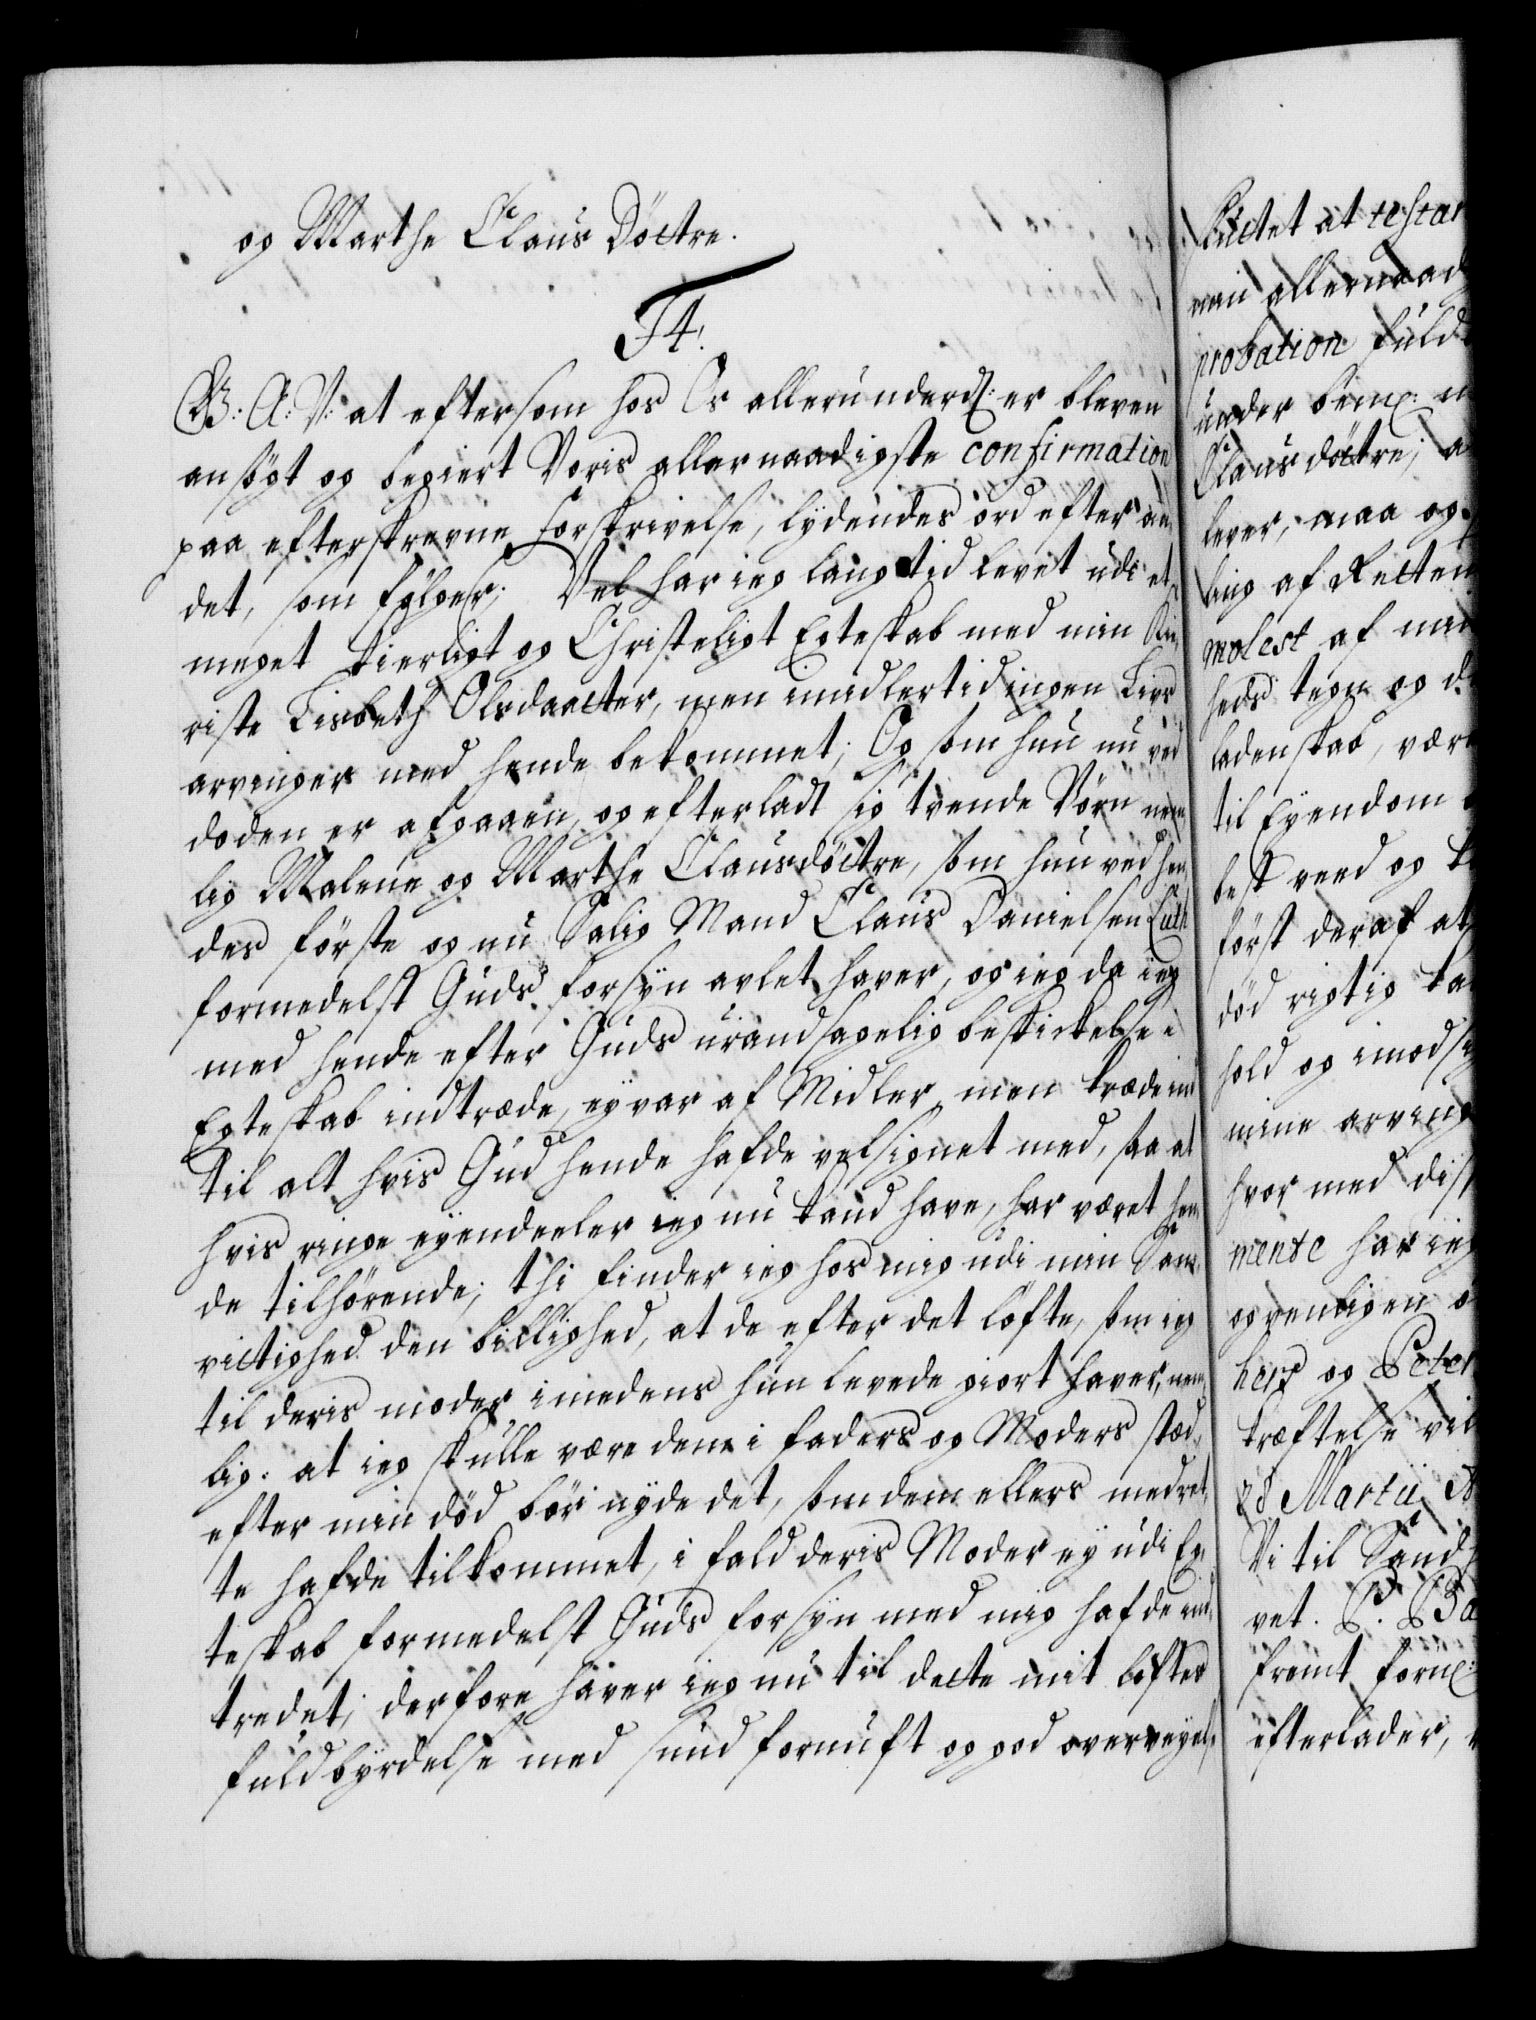 og Marthe Claus Döctre.
F4.
G: A: V: at eftersom hos Os allerunderd: er bleven
ansögt og begiert Voris allernaadigste confirmation
paa efterskrevne Forskrivelse, lydendes ord efter an,
det, som fölger; Vel har ieg lang tid levet udi et
meget kierligt og Christeligt Egteskab med min Kie,
riste Lisbeth Olsdaatter, men imidlertid ingen Livs
arvinger med hende bekommet; Og som hun nu ved
döden er afgaaen, og efterladt sig tvende Börn nem,
lig Malene og Marthe Clausdöctre, som hun ved hen,
des förste og nu Salig Mand Claus Danielsen
formedelst Guds forsyn avlet haver, og ieg da ieg
med hende efter Guds urandsagelig beskickelse i
Egteskab indtræde, ey var af Midler, men træde ind
til alt hvis Gud hende hafde velsignet med, saa at
hvis ringe eyendeeler ieg nu kand have, har været hen,
de tilhörende; thi finder ieg hos mig udi min Sam,
vittighed den billighed, at de efter det löfte, som ieg
til deris moder imedens hun levede giort haver, nem,
lig: at ieg skulle være dem i faders og Moders sted,
efter min död bör nyde det, som dem ellers med ret,
te hafde tilkommet, i fald deris Moder ey udi Eg,
teskab formedelst Guds forsyn med mig hafde ind,
tredet; derfore haver ieg nu til dette mit löftes
fuldbyrdelse med sund fornuft og god overveyelse
sluttet at testa
min allernaad
probation fuld
under bem: m
Clausdöctre; a
lever, maa og
ling af Retten
molest af
heds tegn og
ladenskab, vær
til Eyendom
best veed og k
först deraf at
död rigtig
hold og imodsi
mine arving
hvor med dis
mente har ieg
og venligen
og Peter
kræftelse vil
28 Martii A
Vi til Sand
vet. P. Ba
fremt forn:
efterlader,